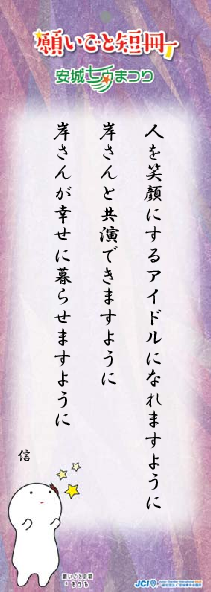 願いごと短冊
安城七夕まつり
人を笑顔にするアイドルになれますように
岸さんと共演できますように
岸さんが幸せに暮らせますように
信
願いごと短冊
JCI